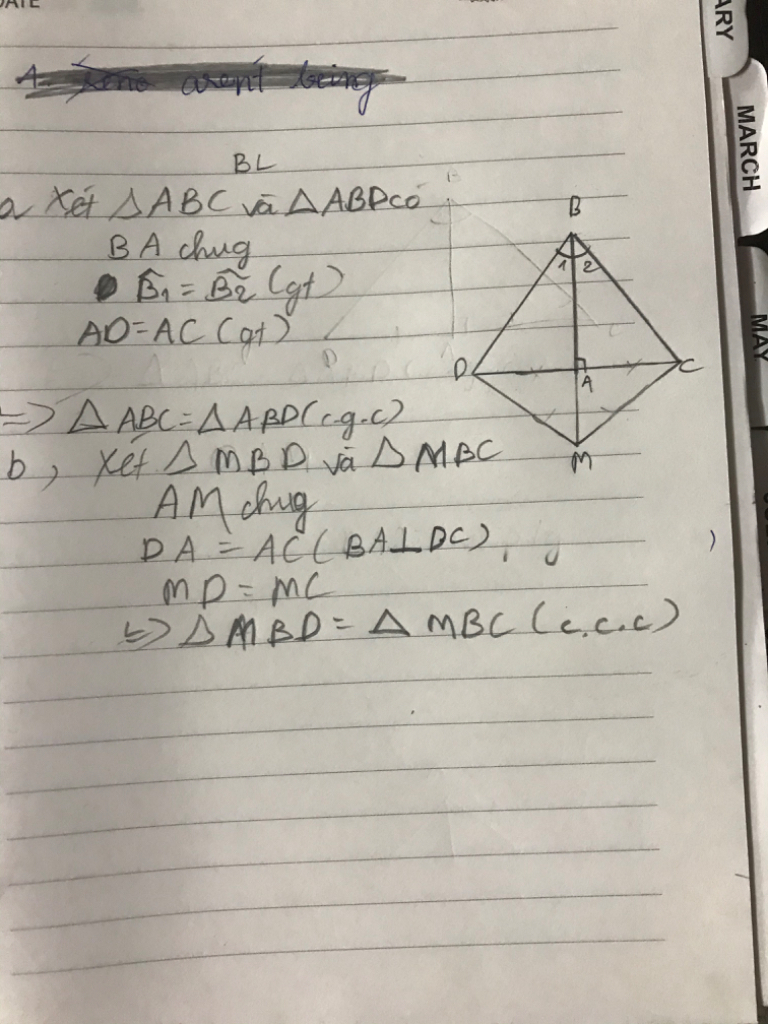 DATE
A. aren't being
BL
a Xét △ABC và △ABD có
BA chug
B̂1 = B̂2 (gt)
AD = AC (gt)
=> △ABC = △ABD (c.g.c)
b, Xét △MBD và △MBC
AM chug
DA = AC (BA⊥DC)
MD = MC
=> △MBD = △MBC (c.c.c)
B
1 2
D A C
M
ARY
MARCH
MAY